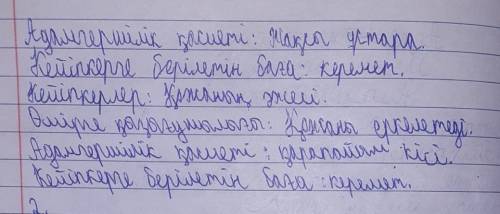 Адамгершілік қасиеті: Жақсы ұстара.
Кейіпкерге берілетін баға: керемет.
Кейіпкерлер: Қожаның әжесі.
Өмірге көзқарасы: Қожаны еркелетеді.
Адамгершілік қасиеті: қарапайым кісі.
Кейіпкерге берілетін баға: керемет.